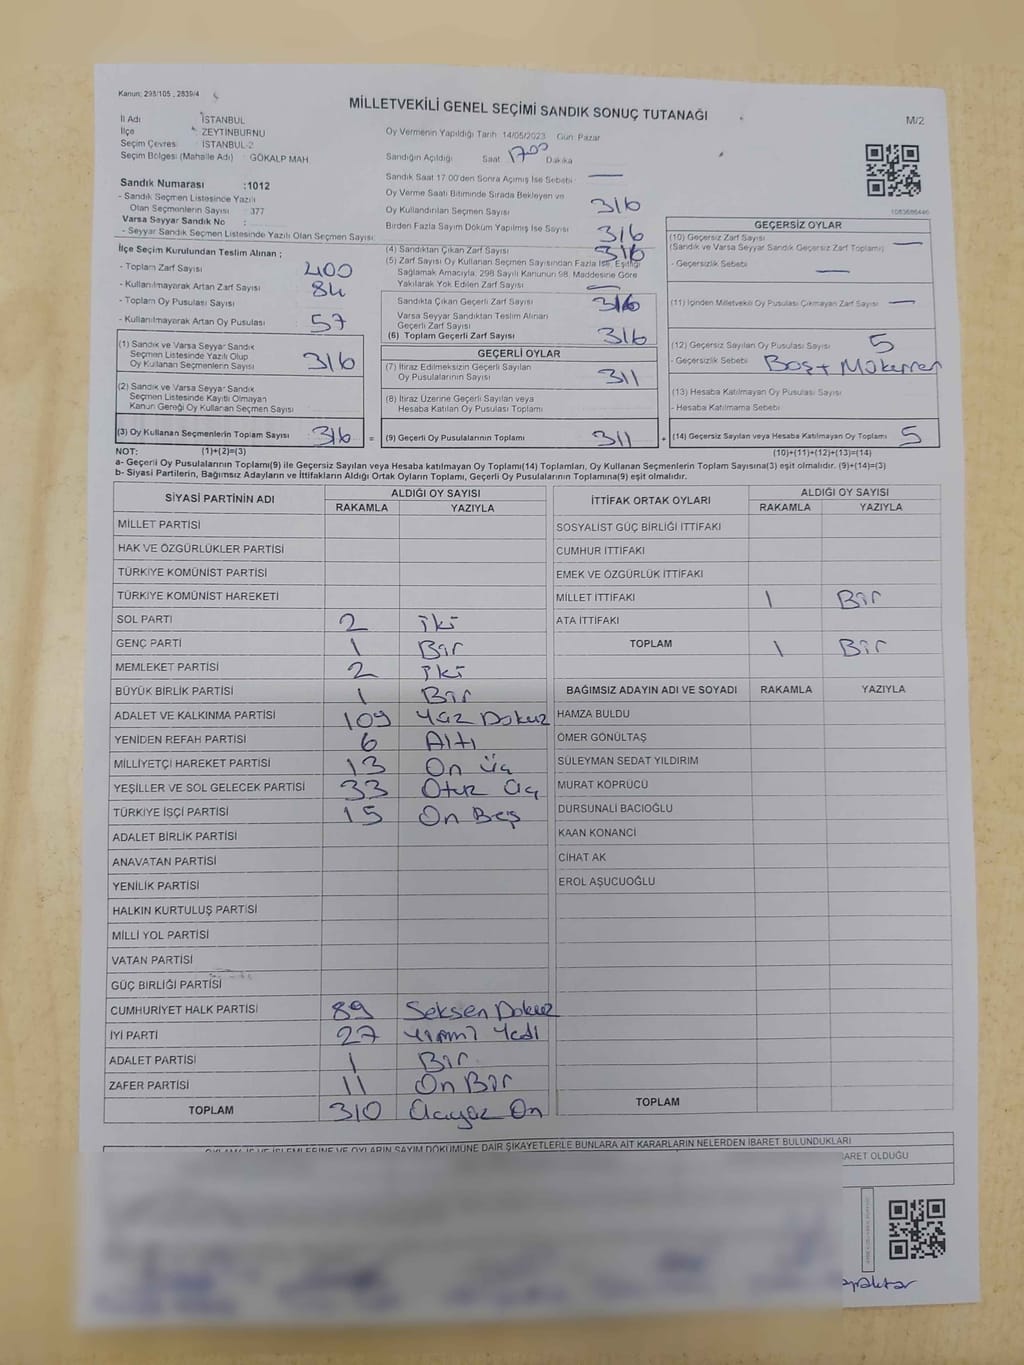 Kanun: 298/105 , 2839/4
MİLLETVEKİLİ GENEL SEÇİMİ SANDIK SONUÇ TUTANAĞI
M/2
İl Adı : İSTANBUL
İlçe : ZEYTİNBURNU
Seçim Çevresi : İSTANBUL-2
Seçim Bölgesi (Mahalle Adı) : GÖKALP MAH
Oy Vermenin Yapıldığı Tarih 14/05/2023 Gün: Pazar
Sandığın Açıldığı Saat 17 00 Dakika
Sandık Saat 17.00'den Sonra Açılmış İse Sebebi : —
Oy Verme Saati Bitiminde Sırada Bekleyen ve
Oy Kullandırılan Seçmen Sayısı 316
Birden Fazla Sayım Döküm Yapılmış İse Sayısı 316
Sandık Numarası :1012
- Sandık Seçmen Listesinde Yazılı
Olan Seçmenlerin Sayısı : 377
Varsa Seyyar Sandık No :
- Seyyar Sandık Seçmen Listesinde Yazılı Olan Seçmen Sayısı:
1083686446
İlçe Seçim Kurulundan Teslim Alınan ;
- Toplam Zarf Sayısı 400
- Kullanılmayarak Artan Zarf Sayısı 84
- Toplam Oy Pusulası Sayısı
- Kullanılmayarak Artan Oy Pusulası 57
(1) Sandık ve Varsa Seyyar Sandık
Seçmen Listesinde Yazılı Olup
Oy Kullanan Seçmenlerin Sayısı 316
(2) Sandık ve Varsa Seyyar Sandık
Seçmen Listesinde Kayıtlı Olmayan
Kanun Gereği Oy Kullanan Seçmen Sayısı
(3) Oy Kullanan Seçmenlerin Toplam Sayısı 316 =
(4) Sandıktan Çıkan Zarf Sayısı 316
(5) Zarf Sayısı Oy Kullanan Seçmen Sayısından Fazla İse, Eşitliği
Sağlamak Amacıyla, 298 Sayılı Kanunun 98. Maddesine Göre
Yakılarak Yok Edilen Zarf Sayısı —
Sandıkta Çıkan Geçerli Zarf Sayısı 316
Varsa Seyyar Sandıktan Teslim Alınan
Geçerli Zarf Sayısı
(6) Toplam Geçerli Zarf Sayısı 316
GEÇERLİ OYLAR
(7) İtiraz Edilmeksizin Geçerli Sayılan
Oy Pusulalarının Sayısı 311
(8) İtiraz Üzerine Geçerli Sayılan veya
Hesaba Katılan Oy Pusulası Toplamı
(9) Geçerli Oy Pusulalarının Toplamı 311 +
GEÇERSİZ OYLAR
(10) Geçersiz Zarf Sayısı
(Sandık ve Varsa Seyyar Sandık Geçersiz Zarf Toplamı) —
- Geçersizlik Sebebi —
(11) İçinden Milletvekili Oy Pusulası Çıkmayan Zarf Sayısı —
(12) Geçersiz Sayılan Oy Pusulası Sayısı 5
- Geçersizlik Sebebi Boş+ Mükerrer
(13) Hesaba Katılmayan Oy Pusulası Sayısı
- Hesaba Katılmama Sebebi
(14) Geçersiz Sayılan veya Hesaba Katılmayan Oy Toplamı 5
NOT: (1)+(2)=(3) (10)+(11)+(12)+(13)=(14)
a- Geçerli Oy Pusulalarının Toplamı(9) ile Geçersiz Sayılan veya Hesaba katılmayan Oy Toplamı(14) Toplamları, Oy Kullanan Seçmenlerin Toplam Sayısına(3) eşit olmalıdır. (9)+(14)=(3)
b- Siyasi Partilerin, Bağımsız Adayların ve İttifakların Aldığı Ortak Oyların Toplamı, Geçerli Oy Pusulalarının Toplamına(9) eşit olmalıdır.
SİYASİ PARTİNİN ADI ALDIĞI OY SAYISI
RAKAMLA YAZIYLA
MİLLET PARTİSİ
HAK VE ÖZGÜRLÜKLER PARTİSİ
TÜRKİYE KOMÜNİST PARTİSİ
TÜRKİYE KOMÜNİST HAREKETİ
SOL PARTİ 2 iki
GENÇ PARTİ 1 Bir
MEMLEKET PARTİSİ 2 iki
BÜYÜK BİRLİK PARTİSİ 1 Bir
ADALET VE KALKINMA PARTİSİ 109 Yüz Dokuz
YENİDEN REFAH PARTİSİ 6 Altı
MİLLİYETÇİ HAREKET PARTİSİ 13 On Üç
YEŞİLLER VE SOL GELECEK PARTİSİ 33 Otuz Üç
TÜRKİYE İŞÇİ PARTİSİ 15 On Beş
ADALET BİRLİK PARTİSİ
ANAVATAN PARTİSİ
YENİLİK PARTİSİ
HALKIN KURTULUŞ PARTİSİ
MİLLİ YOL PARTİSİ
VATAN PARTİSİ
GÜÇ BİRLİĞİ PARTİSİ
CUMHURİYET HALK PARTİSİ 89 Seksen Dokuz
İYİ PARTİ 27 Yirmi Yedi
ADALET PARTİSİ 1 Bir
ZAFER PARTİSİ 11 On Bir
TOPLAM 310 Üçyüz On
İTTİFAK ORTAK OYLARI ALDIĞI OY SAYISI
RAKAMLA YAZIYLA
SOSYALİST GÜÇ BİRLİĞİ İTTİFAKI
CUMHUR İTTİFAKI
EMEK VE ÖZGÜRLÜK İTTİFAKI
MİLLET İTTİFAKI 1 Bir
ATA İTTİFAKI
TOPLAM 1 Bir
BAĞIMSIZ ADAYIN ADI VE SOYADI RAKAMLA YAZIYLA
HAMZA BULDU
ÖMER GÖNÜLTAŞ
SÜLEYMAN SEDAT YILDIRIM
MURAT KÖPRÜCÜ
DURSUNALİ BACIOĞLU
KAAN KONANCİ
CİHAT AK
EROL AŞUCUOĞLU
TOPLAM
OYLARIN SAYIM DÖKÜMÜNE DAİR ŞİKAYETLERLE BUNLARA AİT KARARLARIN NELERDEN İBARET BULUNDUKLARI
BARET OLDUĞU